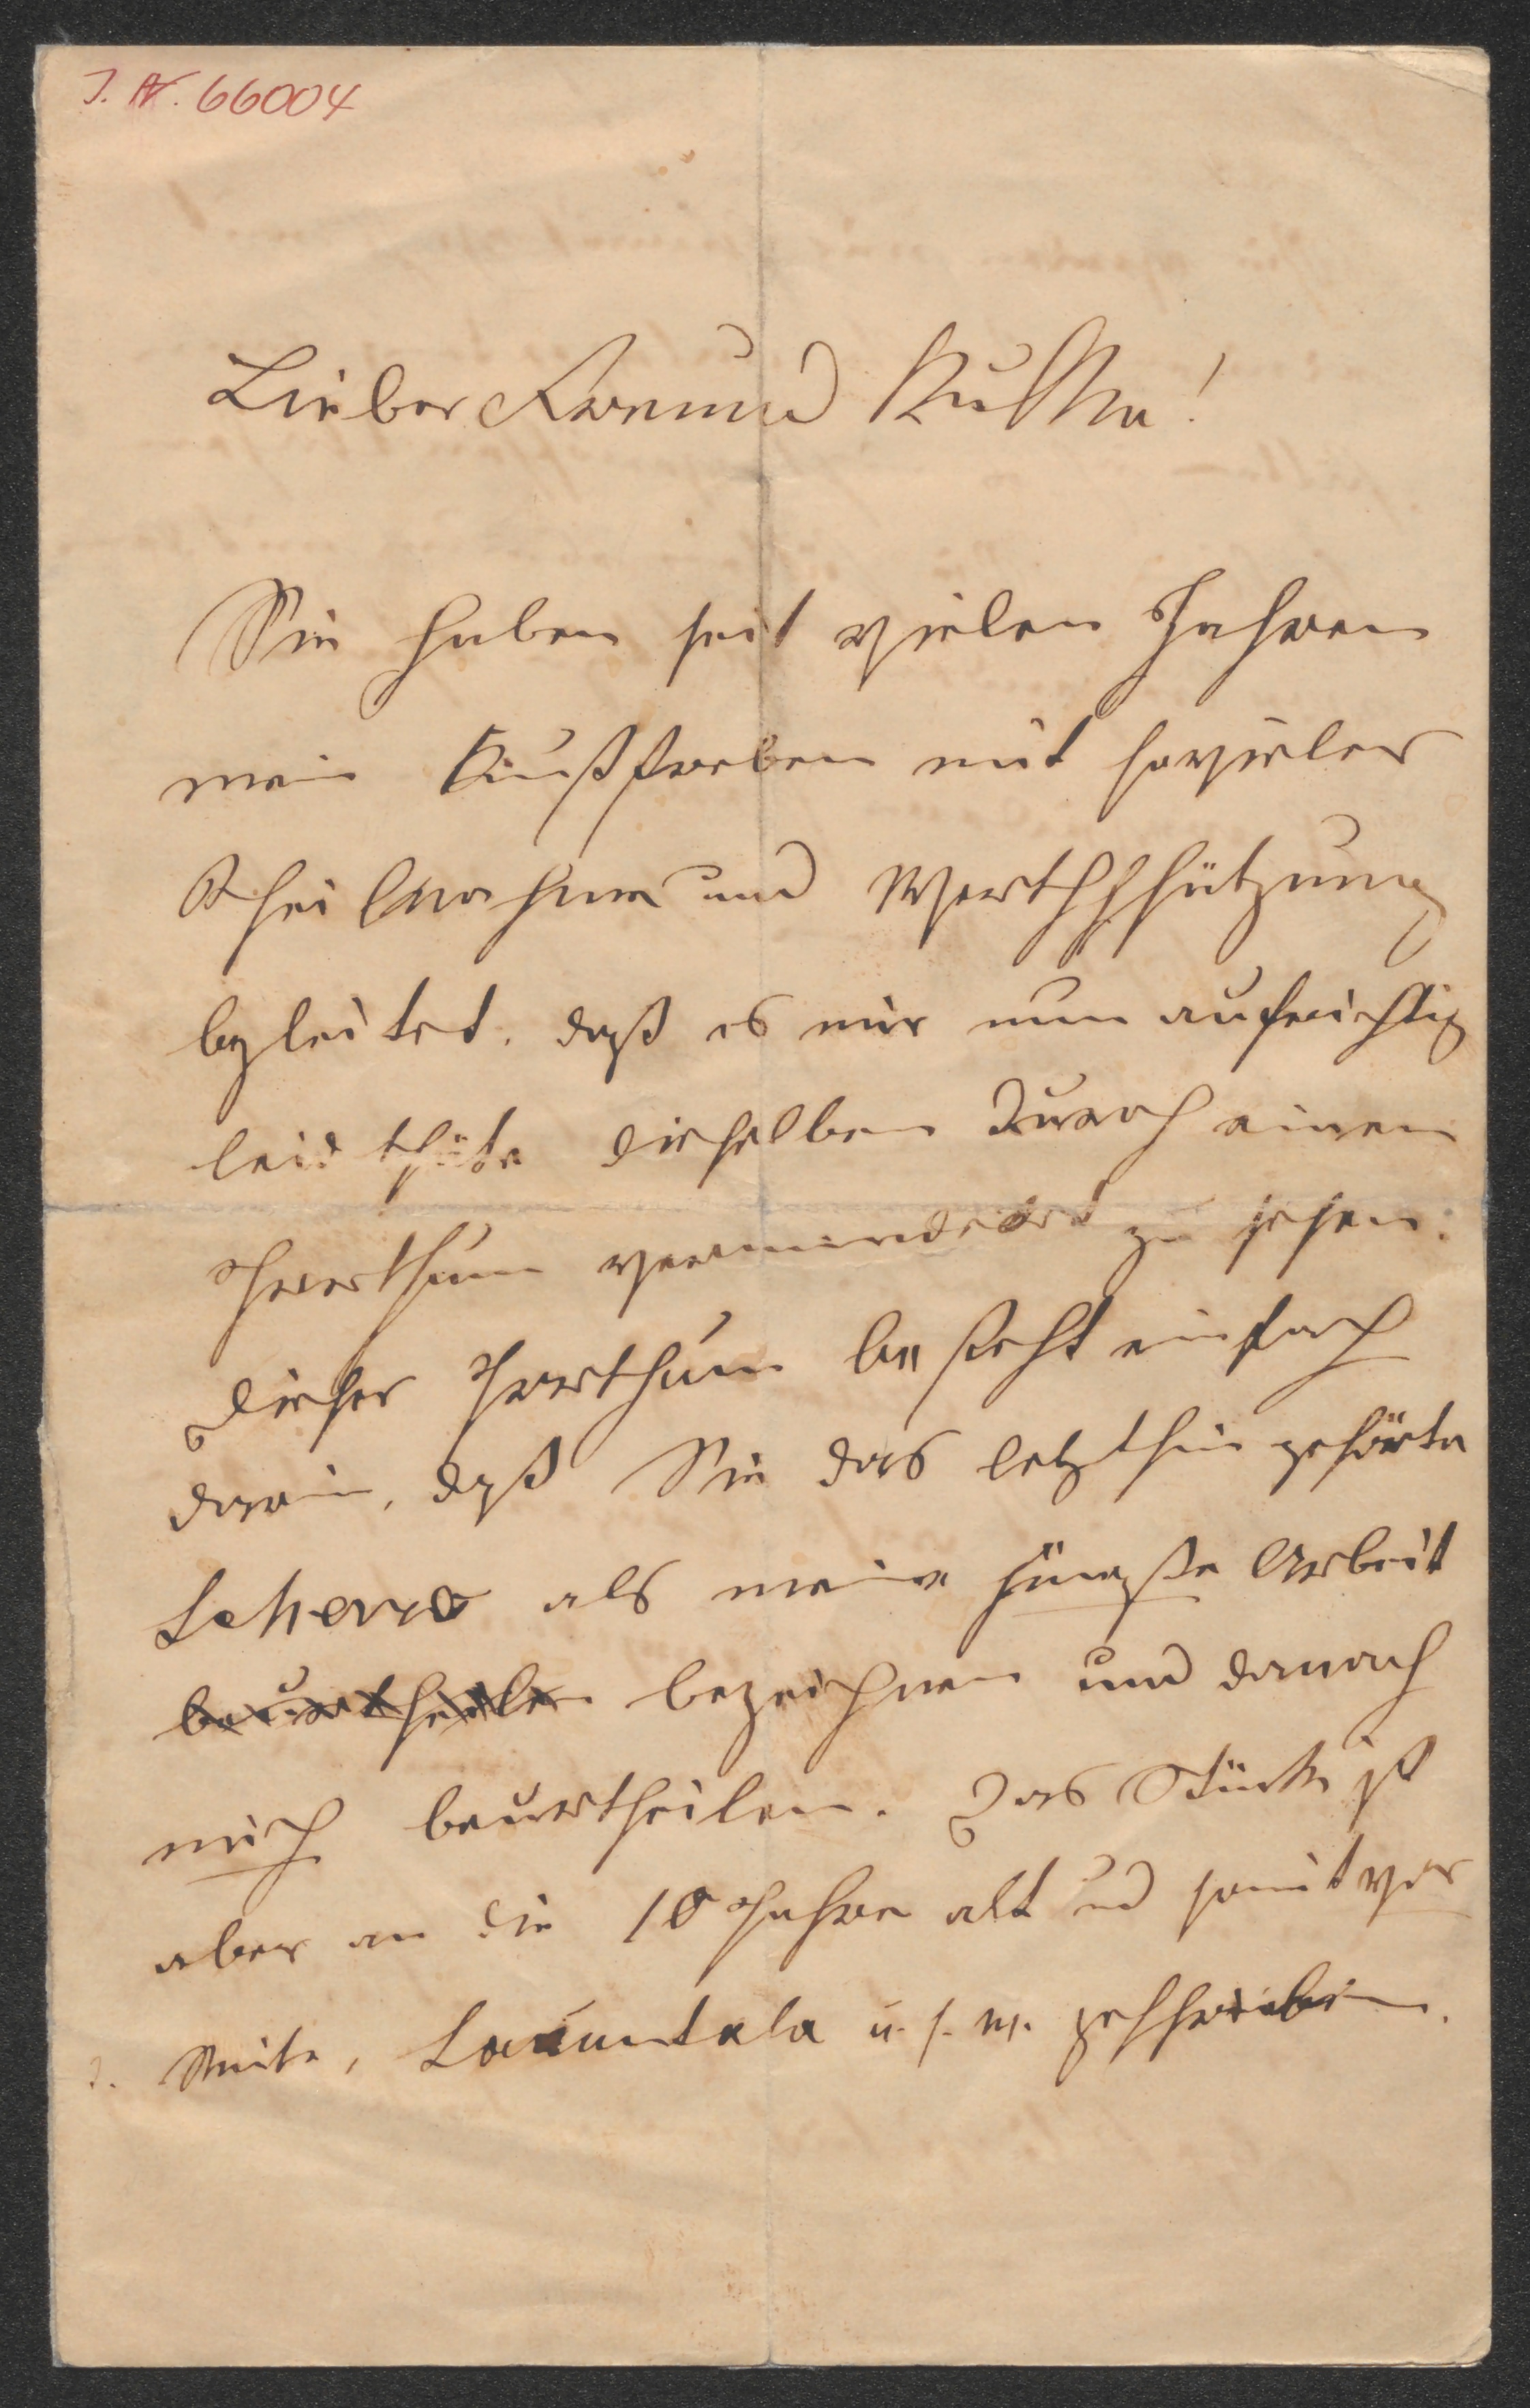 J. N. 66004
Lieber Freund Kulke!
Sie haben seit vielen Jahren
mein Kunststreben mit sovieler
Theilnahme und Werthschätzung
begleitet, daß es mir nun aufrichtig
leid thäte dieselben durch einen
Irrthum vermindert zu sehen.
Dieser Irrthum besteht einfach
darin, daß Sie das letzthin gehörte
Scherzo als meine jüngste Arbeit
beurtheilen bezeichnen und danach
mich beurtheilen. Das Stück ist
aber an die 10 Jahre alt und somit vor
d. Suite, Sacuntala u. s. w. geschrieben.